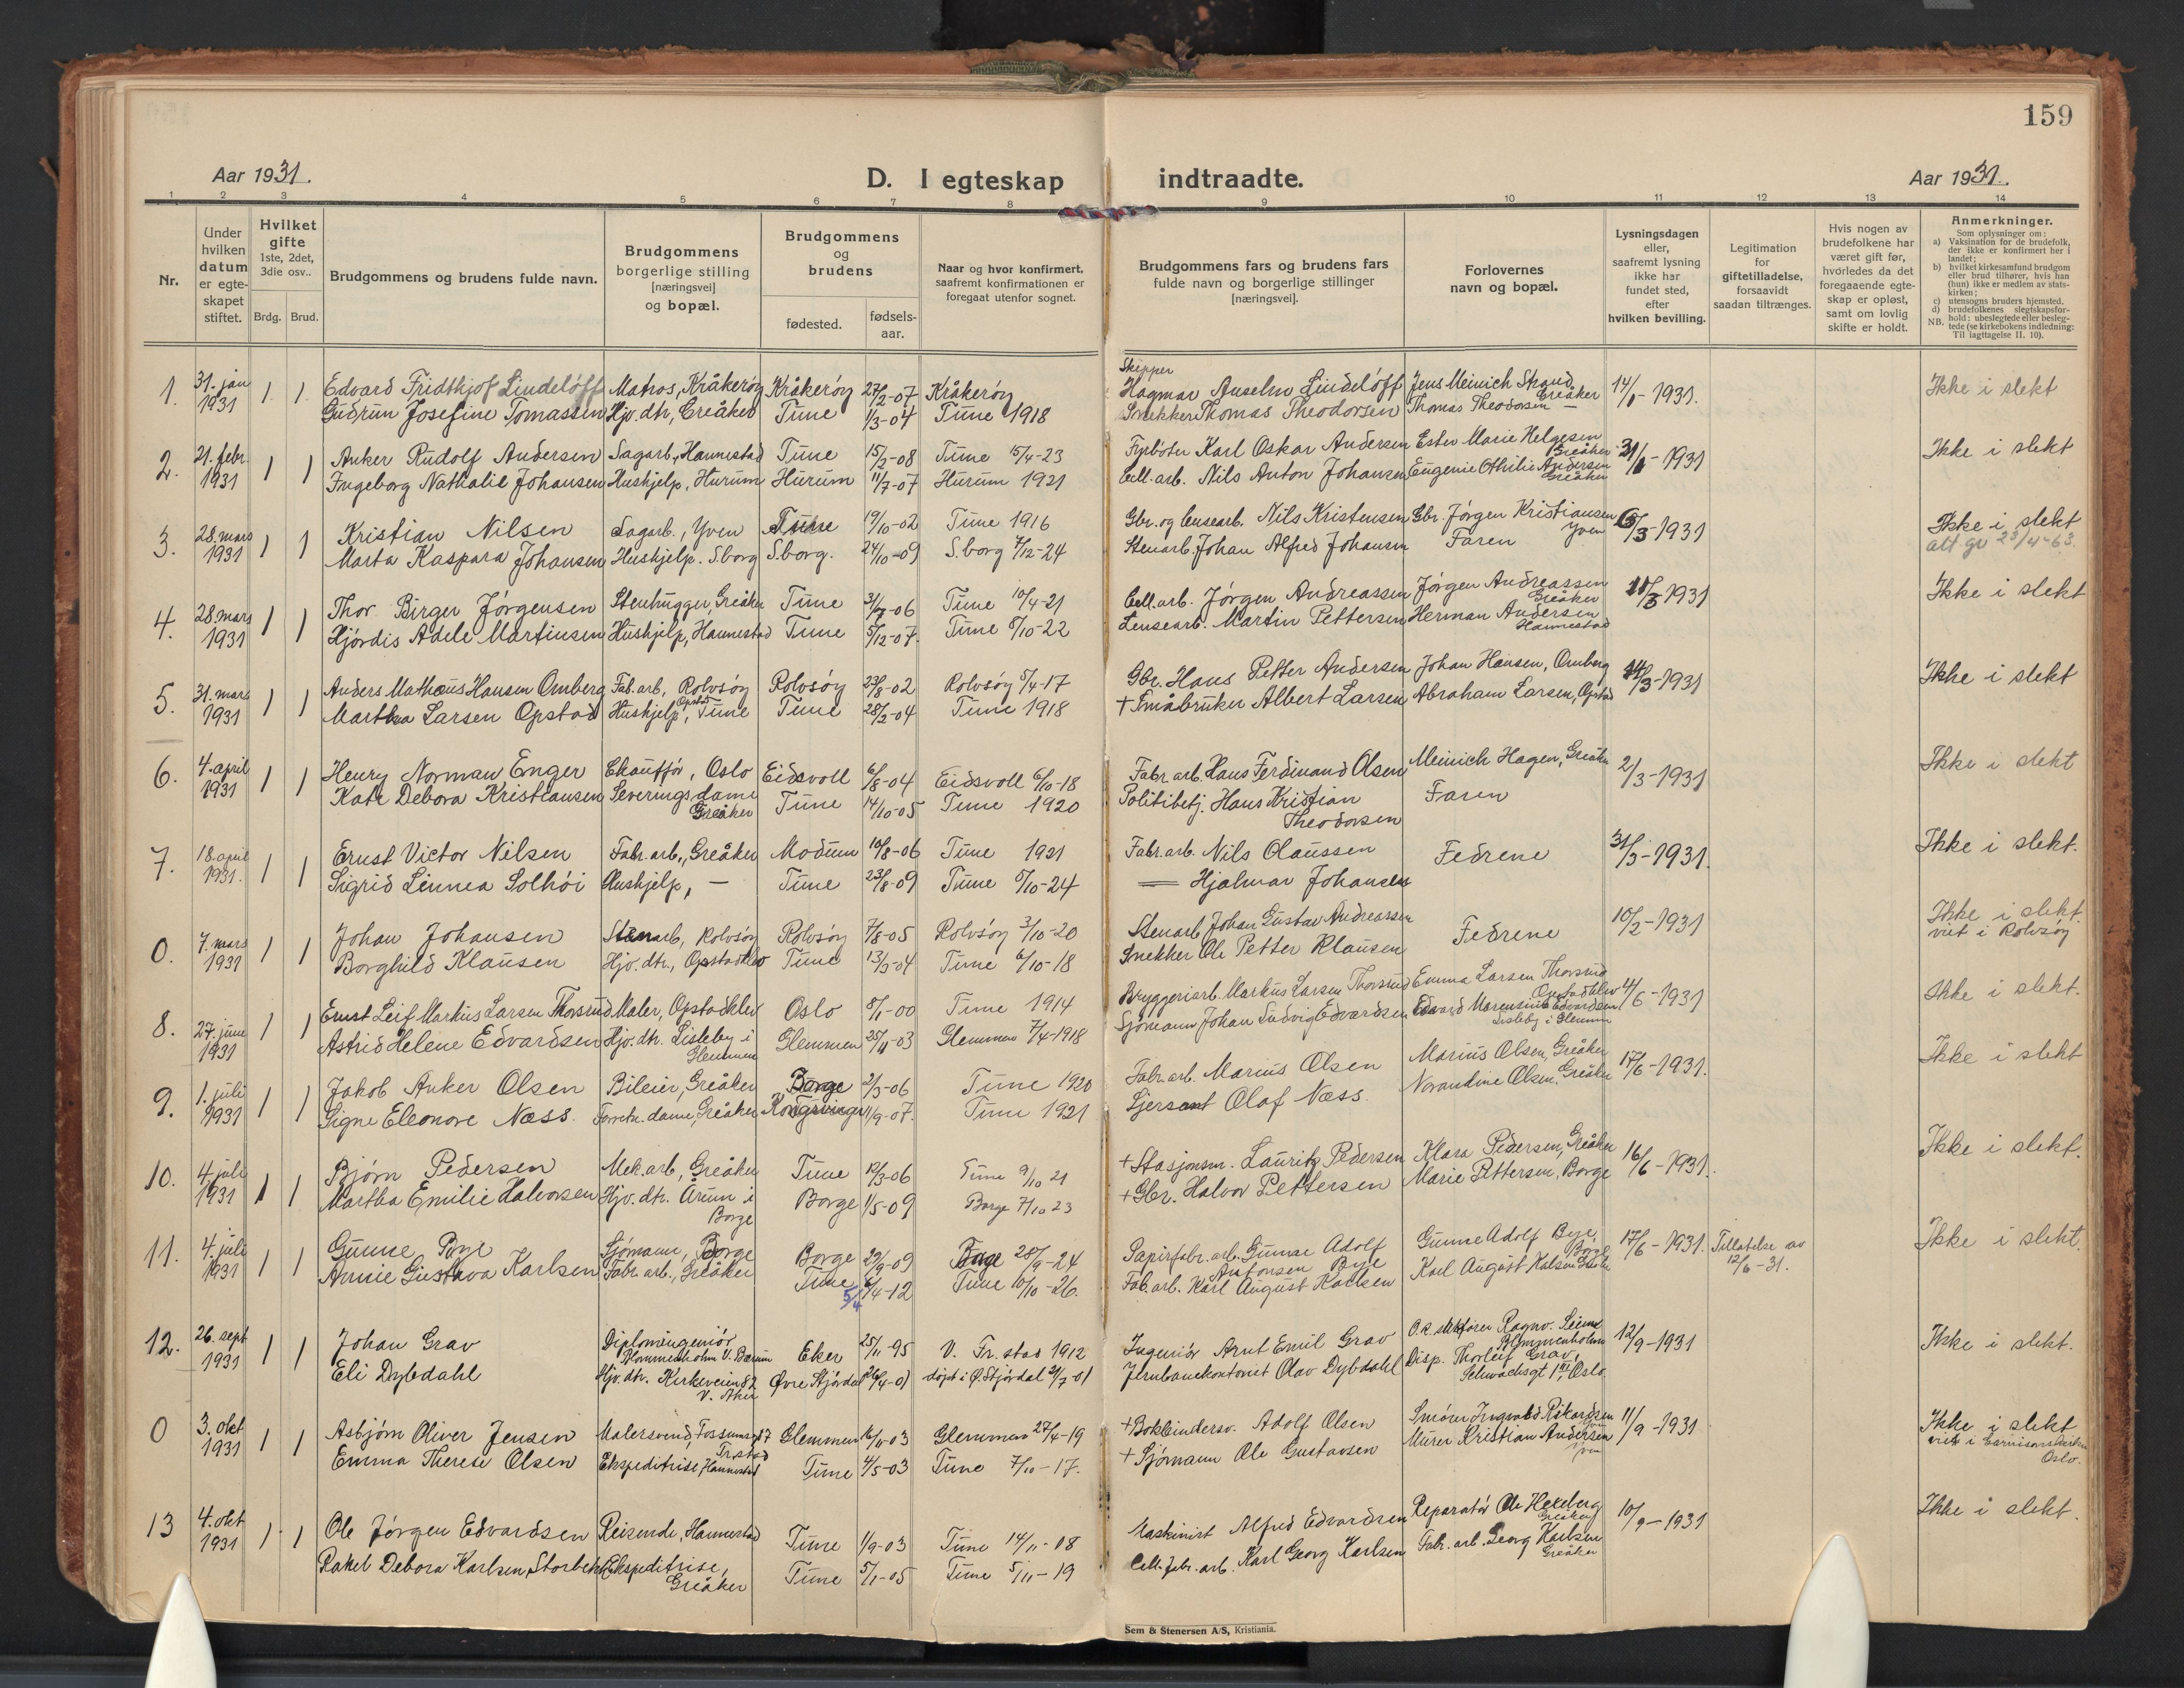 159
Aar 1931.
D. I egteskap indtraadte.
Aar 1931.
1 2 3 4 5 6 7 8 9 10 11 12 13 14
Nr.
Under hvilken datum er egteskapet stiftet.
Hvilket gifte 1ste, 2det, 3die osv..
Brdg. Brud.
Brudgommens og brudens fulde navn.
Brudgommens borgerlige stilling [næringsvei] og bopæl.
Brudgommens og brudens
fødested. fødsels-aar.
Naar og hvor konfirmert, saafremt konfirmationen er foregaat utenfor sognet.
Brudgommens fars og brudens fars fulde navn og borgerlige stillinger [næringsvei].
Forlovernes navn og bopæl.
Lysningsdagen eller, saafremt lysning ikke har fundet sted, efter hvilken bevilling.
Legitimation for giftetilladelse, forsaavidt saadan tiltrænges.
Hvis nogen av brudefolkene har været gift før, hvorledes da det foregaaende egteskap er opløst, samt om lovlig skifte er holdt.
Anmerkninger.
Som oplysninger om:
a) Vaksination for de brudefolk, der ikke er konfirmert her i landet;
b) hvilket kirkesamfund brudgom eller brud tilhører, hvis han (hun) ikke er medlem av statskirken;
c) utensogns bruders hjemsted.
d) brudefolkenes slegtskapsforhold: ubeslegtede eller beslegtede (se kirkebokens indledning:
NB. Til iagttagelse II. 10).
1. 31. jan 1931 1. 1. Edvard Fridthjof Lindelöff Matros, Kråkeröy Kråkeröy 27/2-07 Kråkeröy Skipper Hagmar Anselm Lindelöff Jens Meinich Strand Greåker 14/1-1931. Ikke i slekt
Gudrun Josefine Tomassen Hjv. dtr, Greåker Tune 1/3-04 Tune 1918 Snekker Thomas Theodorsen Thomas Theodorsen —
2. 21. febr. 1931 1 1 Anker Rudolf Andersen Sagarb., Hannestad Tune 15/2-08 Tune 15/4-23 Fyrböter Karl Oskar Andersen Ester Marie Helgesen Greåker 31/1-1931 Ikke i slekt
Ingeborg Nathalie Johansen Hushjelp, Hurum Hurum 11/7-07 Hurum 1921 Cell. arb. Nils Anton Johansen Eugenie Othilie Andersen Greåker
3. 28. mars 1931 1 1 Kristian Nilsen Sagarb., Yven Tune 19/10-02 Tune 1916 Gbr. og lensearb. Nils Kristensen Gbr. Jörgen Kristiansen Yven 6/3-1931 Ikke i slekt
Marta Kaspara Johansen Hushjelp. S.borg S.borg. 24/10-09 S.borg 7/12-24 Stenarb. Johan Alfred Johansen Faren att. gv 23/4-63.
4. 28. mars 1931 1 1 Thor Birger Jörgensen Stenhugger, Greåker Tune Tune 10/4-21 Cell. arb. Jörgen Andreassen Jörgen Andreassen Greåker Ikke i slekt
Hjördis Adele Martinsen Hushjelp, Hannestad Tune 5/12-07. Tune 8/10-22 Lensearb. Martin Pettersen Herman Andersen Hannestad
5. 31. mars 1931 1 1 Anders Mathæus Hansen Omberg Fab. arb, Rolvsöy Rolvsöy 23/8-02 Rolvsöy 5/4-17 Gbr. Hans Petter Andersen Johan Hansen, Omberg Ikke i slekt
Martha Larsen Opstad Hushjelp, Opstad Tune Tune 28/2-04 Tune 1918 + Småbruker Albert Larsen Abraham Larsen, Opstad
6. 4. april 1931 1 1 Henry Norman Enger Chaufför, Oslo Eidsvoll 6/8-04 Eidsvoll 6/10-18 Fabr. arb. Hans Ferdinand Olsen Meinich Hagen, Greåker 2/3-1931 Ikke i slekt
Kate Debora Kristiansen Severingsdame Greåker Tune 14/10-05 Tune 1920 Politibetj. Hans Kristian Theodorsen Faren
7. 18. april 1931. 1 1 Ernst Victor Nilsen Fabr. arb., Greåker Modum 10/8-06 Tune 1921 Fabr. arb. Nils Olaussen Fedrene 31/3-1931. Ikke i slekt.
Sigrid Linnea Solhöi Hushjelp, — Tune 23/8-09 Tune 5/10-24 — Hjalmar Johansen
0. 7. mars 1931 1 1 Johan Johansen Stenarb, Rolvsöy Rolvsöy 7/8-05 Rolvsöy 3/10-20 Stenarb. Johan Gustav Andreassen Fedrene 10/2-1931 Ikke i slekt. viet i Rolvsöy
Borghild Klausen Hjv. dtr., Opstadklev Tune 13/3-04 Tune 6/10-18 Snekker Ole Petter Klausen
8. 27. june 1931 1 1 Ernst Leif Markus Larsen Thorsrud Maler, Opstadklev Oslo 8/1-00 Tune 1914 Bryggeriarb. Markus Larsen Thorsrud Emma Larsen Thorsrud Opstadklev 4/6-1931 Ikke i slekt.
Astrid Helene Edvardsen Hjv. dtr. Lisleby i Glemmen Glemmen 25/11-03 Glemmen 7/4-1918 Sjömann Johan Ludvig Edvardsen Edvard Marensius Edvardsen Lisleby i Glemmen
9. 1. juli 1931 1 1 Jakob Anker Olsen Bileier, Greåker Borge 2/3-06 Tune 1920 Fabr. arb. Marius Olsen Marius Olsen, Greåker 17/6-1931. Ikke i slekt
Signe Eleonore Næss. Forretn. dame, Greåker Kongsvinger 1/9-07. Tune 1921 Sjersant Olaf Næss. Norandine Olsen, Greåker
10. 4. juli 1931 1 1 Björn Pedersen Mek. arb, Greåker Tune 12/3-06 Tune 9/10 21 + Stasjonsm. Lauritz Pedersen Klara Pedersen, Greåker 16/6-1931. Ikke i slekt.
Martha Emilie Halvorsen Hjv. dtr. Årum i Borge Borge 1/5-09 Borge 7/10 23 + Gbr. Halvor Pettersen Marie Pettersen, Borge
11. 4. juli 1931 1 1 Gunne Bye Sjömann, Borge Borge 29/9-09 Borge 28/9-24 Papirfabr. arb. Gunne Adolf Antonsen Bye Gunne Adolf Bye, Borge 17/6-1931. Tillatelse av 12/6-31. Ikke i slekt.
Annie Gustava Karlsen Fabr. arb., Greåker Tune 6/4-12 5/4 Tune 10/10-26. Fab. arb. Karl August Karlsen Karl August Kalsen
12. 26. sept 1931 1 1 Johan Grav Diplomingeniör, Blommenholm V. Bærum Eker 25/11-95 V. Fr.stad 1912 Ingeniör Arnt Emil Grav Ragnv. Blommenholm 12/9-1931 Ikke i slekt.
Eli Dybdahl Hjv. dtr. Kirkeveien 82 V. Aker Övre Stjördal 26/4-01 döpt i Ö. Stjördal 21/7-01 Jernbanekontorist Olav Dybdahl Disp. Thorleif Grav, Schwachsgt 1 Oslo.
0 3. okt 1931 1 1 Asbjörn Oliver Jensen Malersvend, Fossumsgt 7 Fr.stad Glemmen 16/11-03 Glemmen 27/4-19 + Bokbindersv. Adolf Olsen Ingvald Rikardsen 11/9-1931 Ikke i slekt viet i Garnisonskirken Oslo.
Emma Therese Olsen Ekspeditrise, Hannestad Tune 4/5-03 Tune 7/10-17. + Sjömann Ole Gustavsen Murer Kristian Andersen Yven
13 4. okt 1931 1. 1 Ole Jörgen Edvardsen Reisende, Hannestad Tune 1/9-03 Tune 14/11-08 Maskinist Alfred Edvardsen Reparatör Ole Hexeberg Greåker 10/9-1931 Ikke i slekt.
Rakel Debora Karlsen Storbekk Ekspeditrise, Greåker Tune 5/1-05 Tune 5/11-19 Cell. fabr. arb. Karl Georg Karlsen Fabr. arb. Georg Karlsen Greåker
Sem & Stenersen A/S, Kristiania.